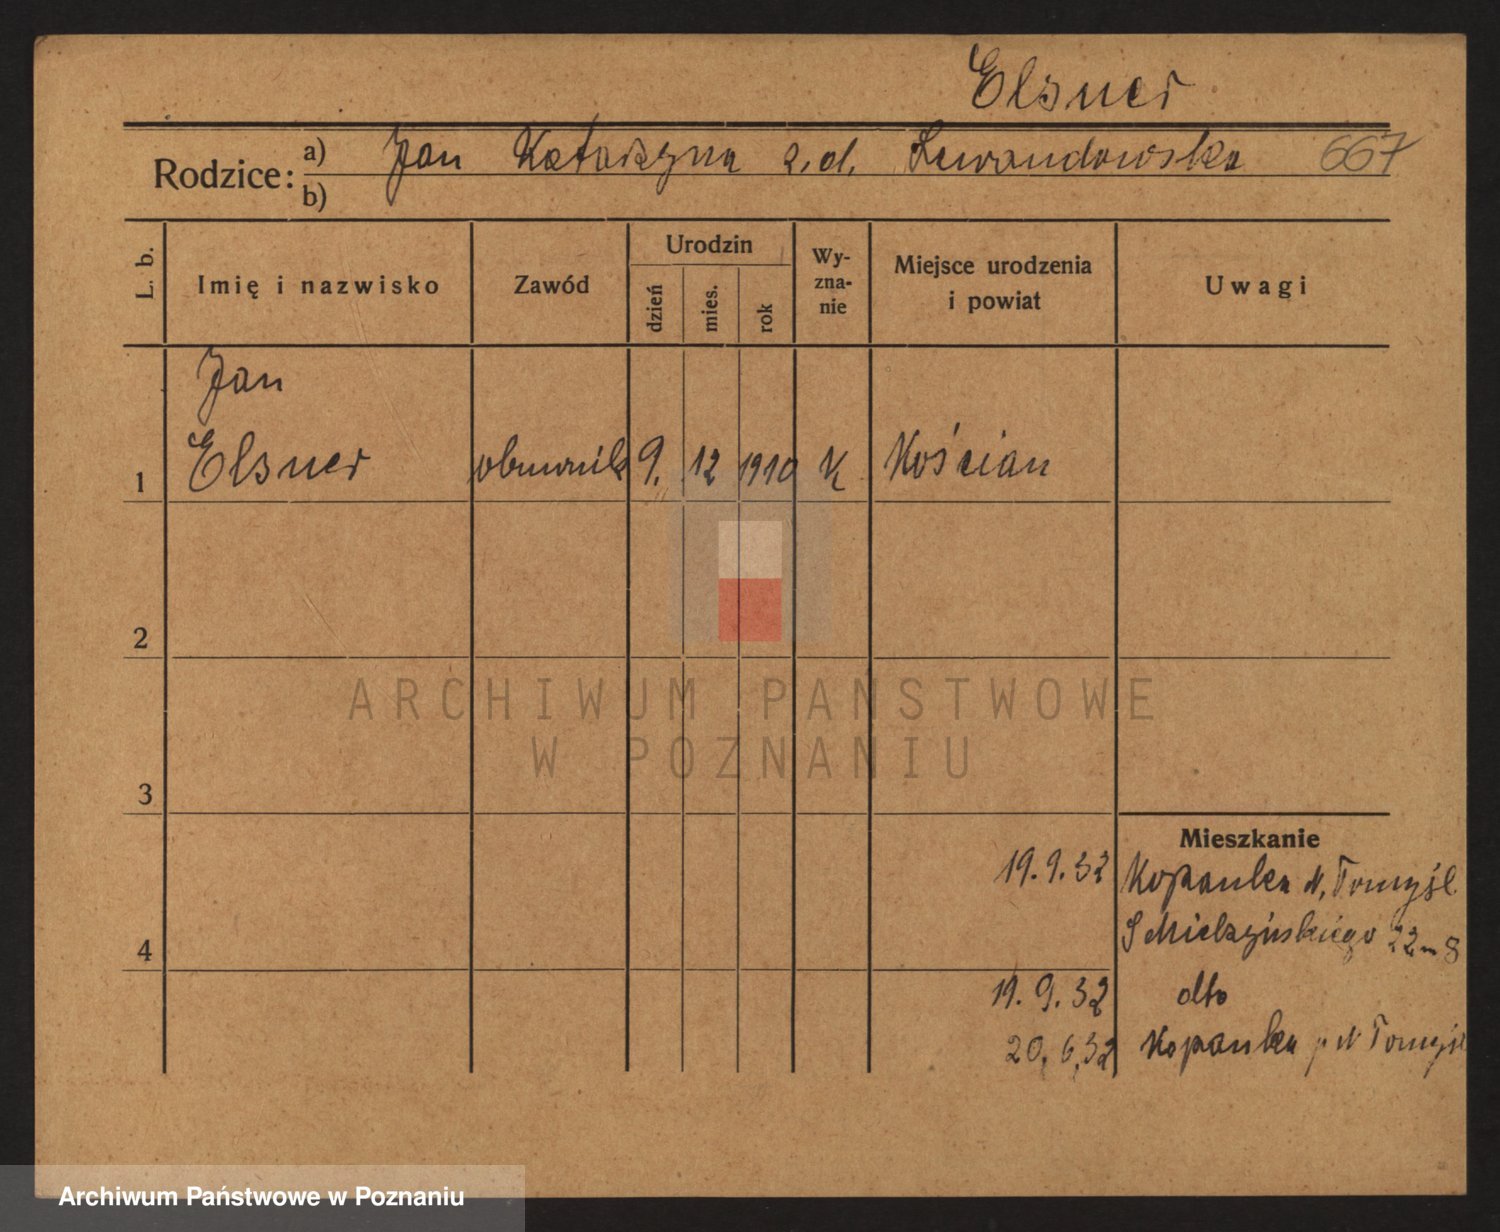 Elsner
Rodzice: a) Jan Katarzyna z.d. Lewandowska 667
b)
L. b. Imię i nazwisko Zawód Urodzin dzień mies. rok Wy-zna-nie Miejsce urodzenia i powiat Uwagi
Jan
1 Elsner obuwnik 9. 12 1910 K Kościan
2
ARCHIWUM PAŃSTWOWE
W POZNANIU
3
Mieszkanie
19.9.32 Kopanka N. Tomyśl
4 S Mielżyńskiego 22 m 8
19.9.32 dto
20.6.32 Kopanka p N Tomyśl
Archiwum Państwowe w Poznaniu